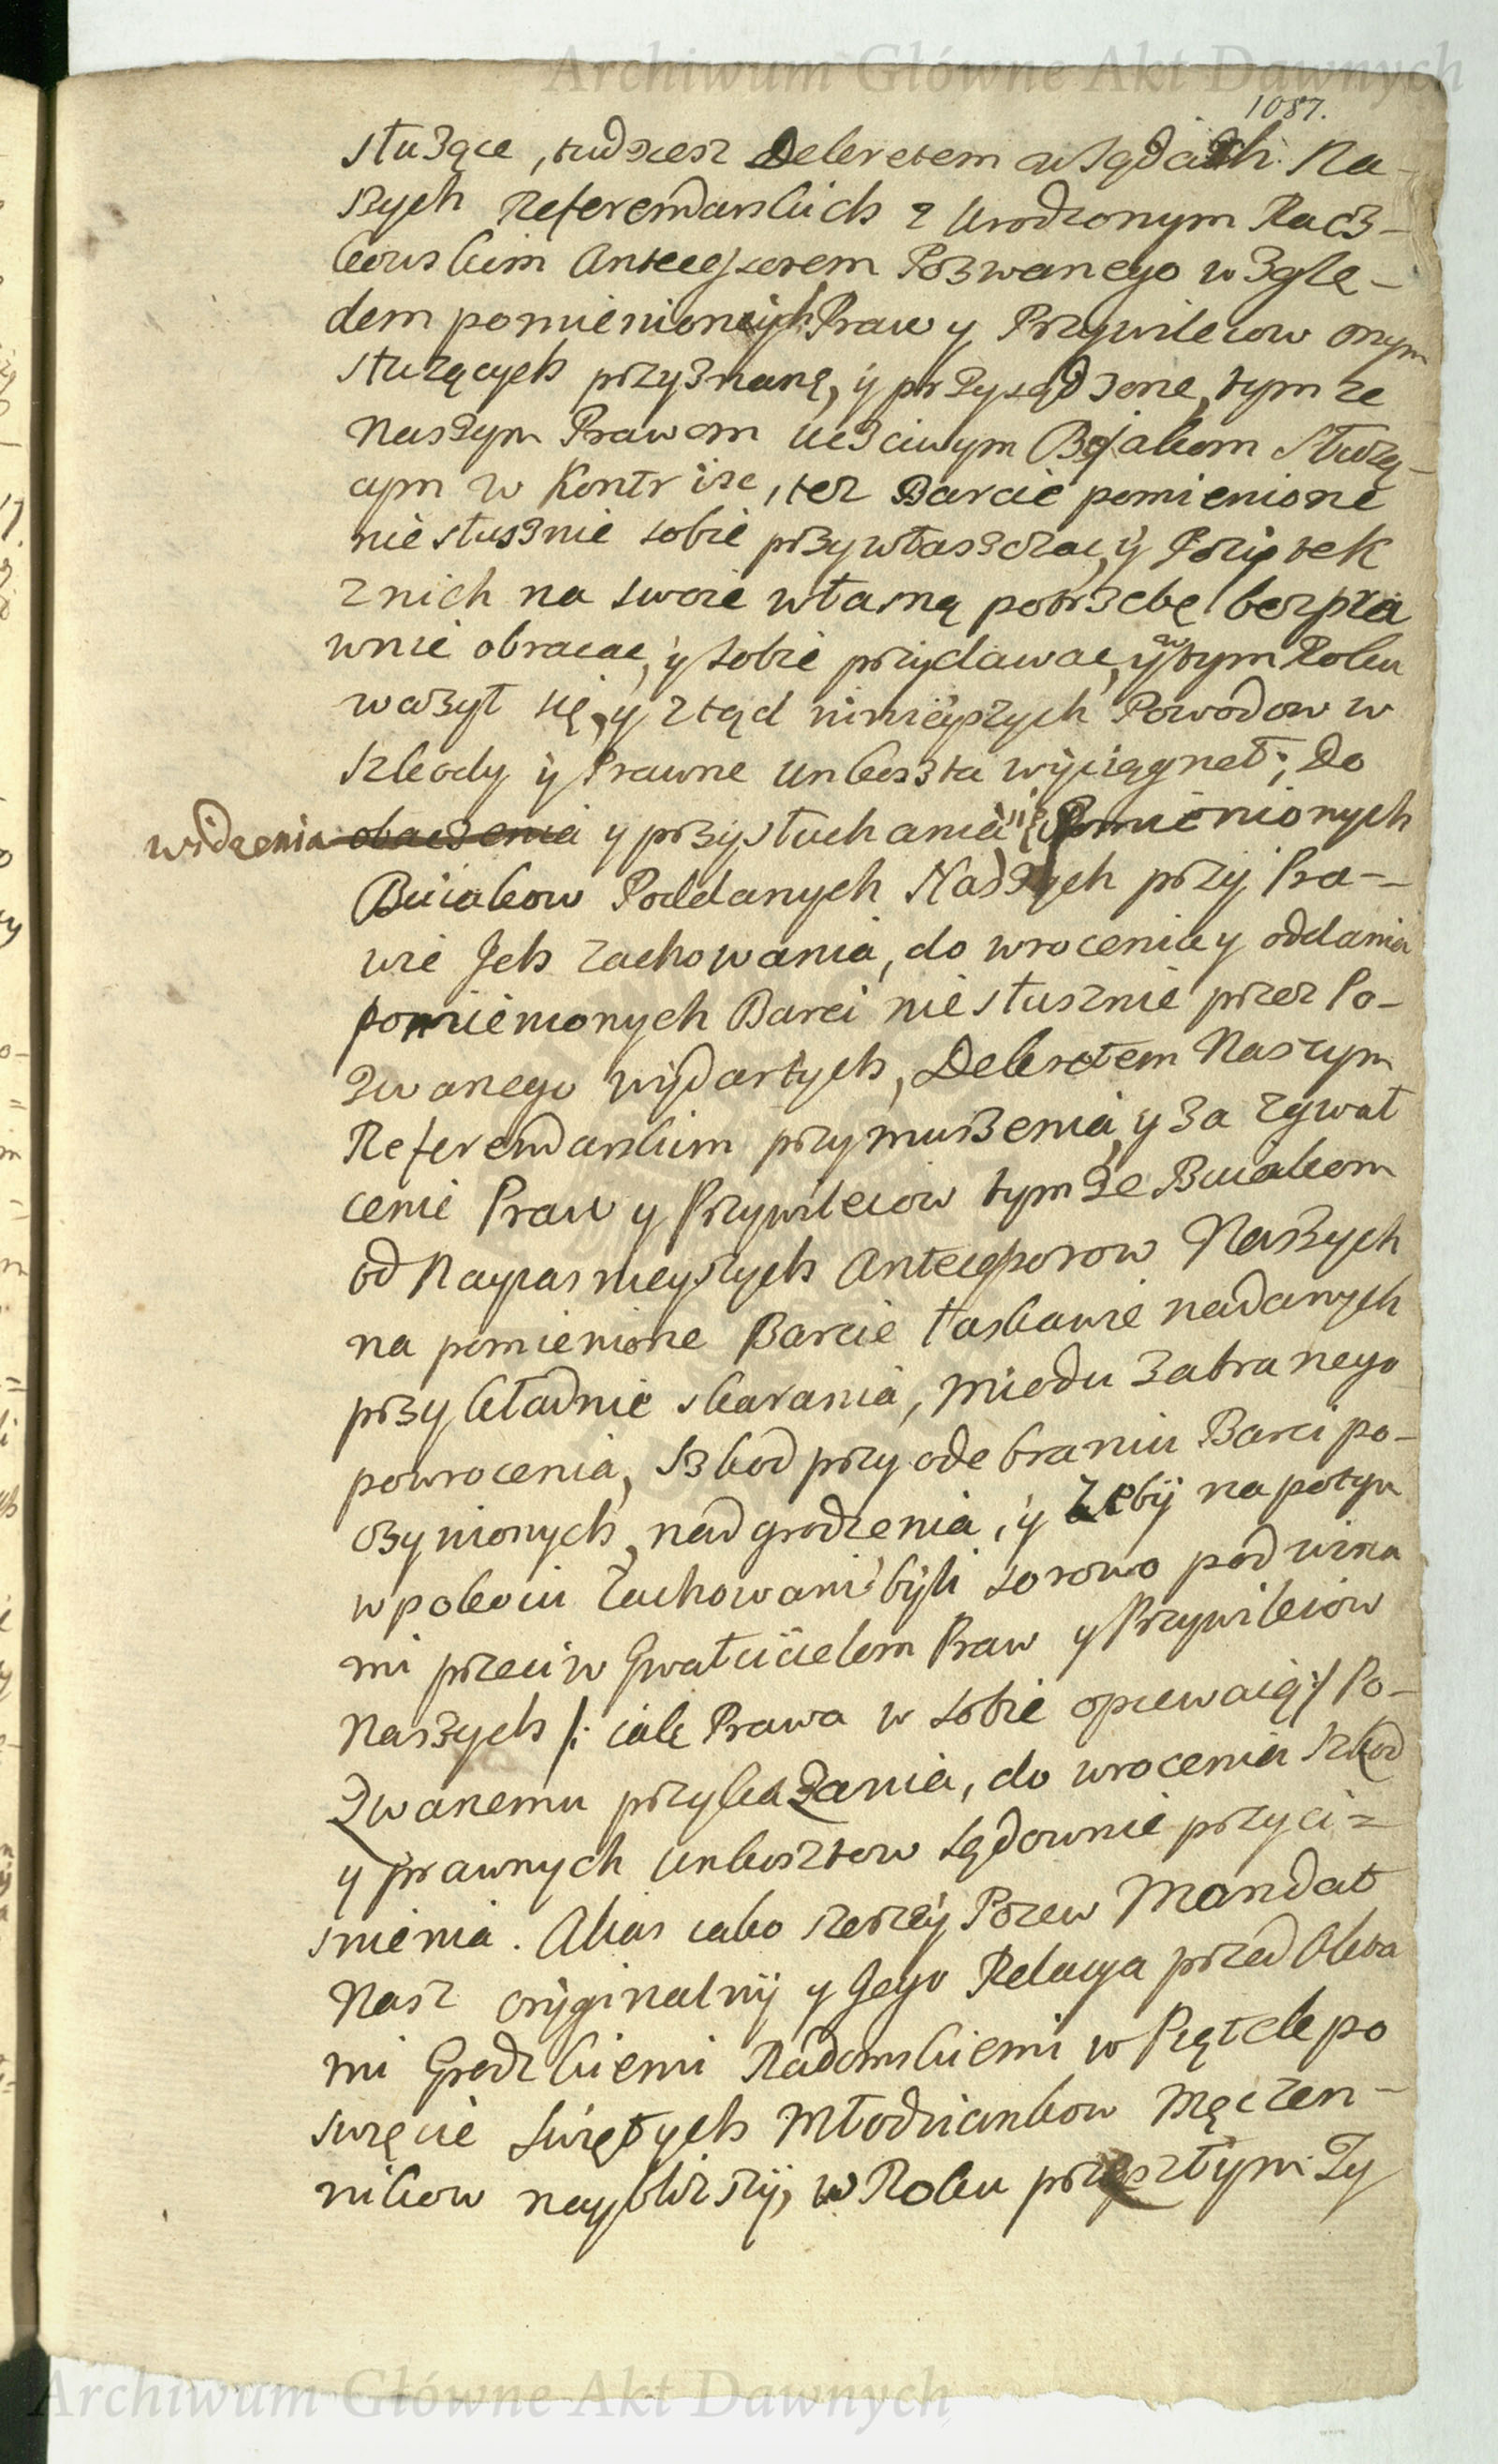 Archiwum Główne Akt Dawnych
1087.
służące, tudziesz Dekretem w Sądach Na-
szych Referendarskich z Urodzonym Racz-
kowskim Antecessorem Pozwanego wzglę-
dem pomienionych Praw y Przywileiow onym
służących przyznane, y przysądzone, tym ze
Naszym Prawom uczciwym Bujakom służą-
cym w Kontr isc, tez Barcie pomienione
niesłusznie sobie przywłaszczac, y Pozytek
z nich na swoie własną potrzebę bezpra
wnie obracac, y sobie przydawac, y w tym Roku
wazył się, y ztąd ninieyszych Powodow w
szkody y Prawne unkoszta wyciągneł; Do
widzenia obaczenia y przysłuchania się Pomienionych
Buiakow Poddanych Naszych przy Pra-
wie Jch zachowania, do wrocenia y oddania
pomienionych Barci niesłusznie przez Po-
zwanego wydartych, Dekretem Naszym
Referendarskim przymuszenia, y za zgwał
cenie Praw y Przywileiow tymze Buiakom
od Nayiasnieyszych Antecessorow Naszych
na pomienione Barcie łaskawie nadanych
przykładnie skarania, Miodu zabranego
powrocenia, szkod przy odebraniu Barci po-
czynionych, nadgrodzenia, y zeby napotym
w pokoiu zachowani byli sorowo pod wina
mi przeciw Gwałcicielom Praw y Przywileiow
Naszych /: iak Prawa w sobie opiewaią :/ Po-
zwanemu przykazania, do wrocenia szkod
y prawnych unkosztow sądownie przyci=
snienia. Alias iako szerzey Pozew Mandat
Nasz oryginalny y Jego Relacya przed Akta
mi Grodzkiemi Radomskiemi w Piątek po
swięcie Swiętych Młodziankow Męczen-
nikow nayblizszy, w Roku przeszłym Ty
Archiwum Główne Akt Dawnych